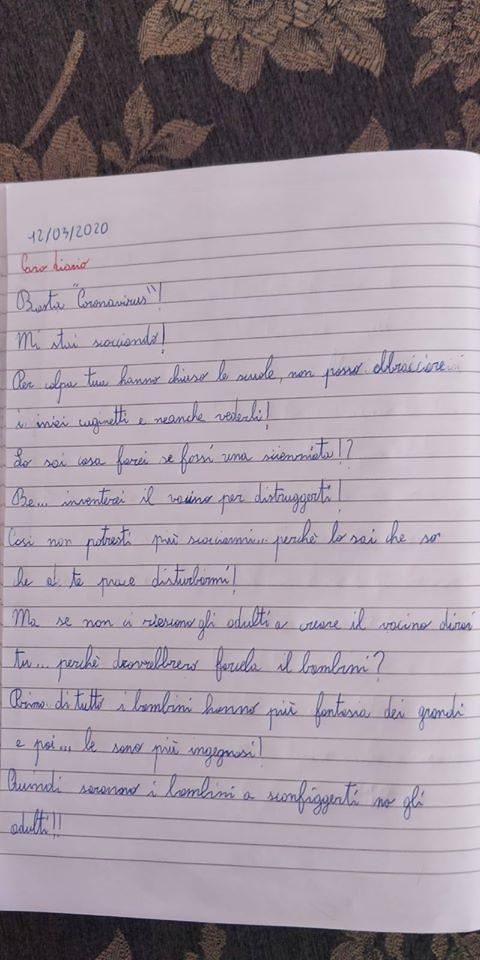 12/03/2020
Caro diario
Basta "Coronavirus"!
Mi stai scocciando!
Per colpa tua hanno chiuso le scuole, non posso abbracciare
i miei cuginetti e neanche vederli!
Lo sai cosa farei se fossi una scienziata!?
Be... inventerei il vacino per distruggerti!
Cosi non potresti più scocciarmi... perchè lo sai che so
che a te piace disturbarmi!
Ma se non ci riescono gli adulti a creare il vacino dirai
tu... perchè dovrebbero farcela i bambini?
Prima di tutto i bambini hanno più fantasia dei grandi
e poi... le sono più ingegnosi!
Quindi saranno i bambini a sconfiggerti no gli
adulti!!